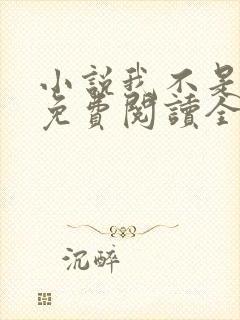 小説我不是
免費閱讀全
沉醉